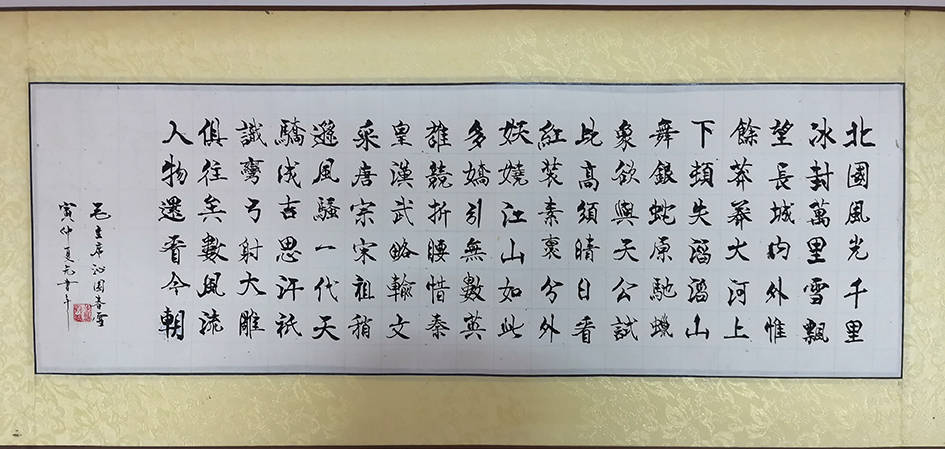 北國風光千里
冰封萬里雪飄
望長城內外惟
餘莽莽大河上
下頓失滔滔山
舞銀蛇原馳蠟
象欲與天公試
比高須晴日看
紅裝素裹分外
妖嬈江山如此
多嬌引無數英
雄競折腰惜秦
皇漢武略輸文
采唐宗宋祖稍
遜風騷一代天
驕成吉思汗祇
識彎弓射大雕
俱往矣數風流
人物還看今朝
毛主席沁園春雪
寅仲夏